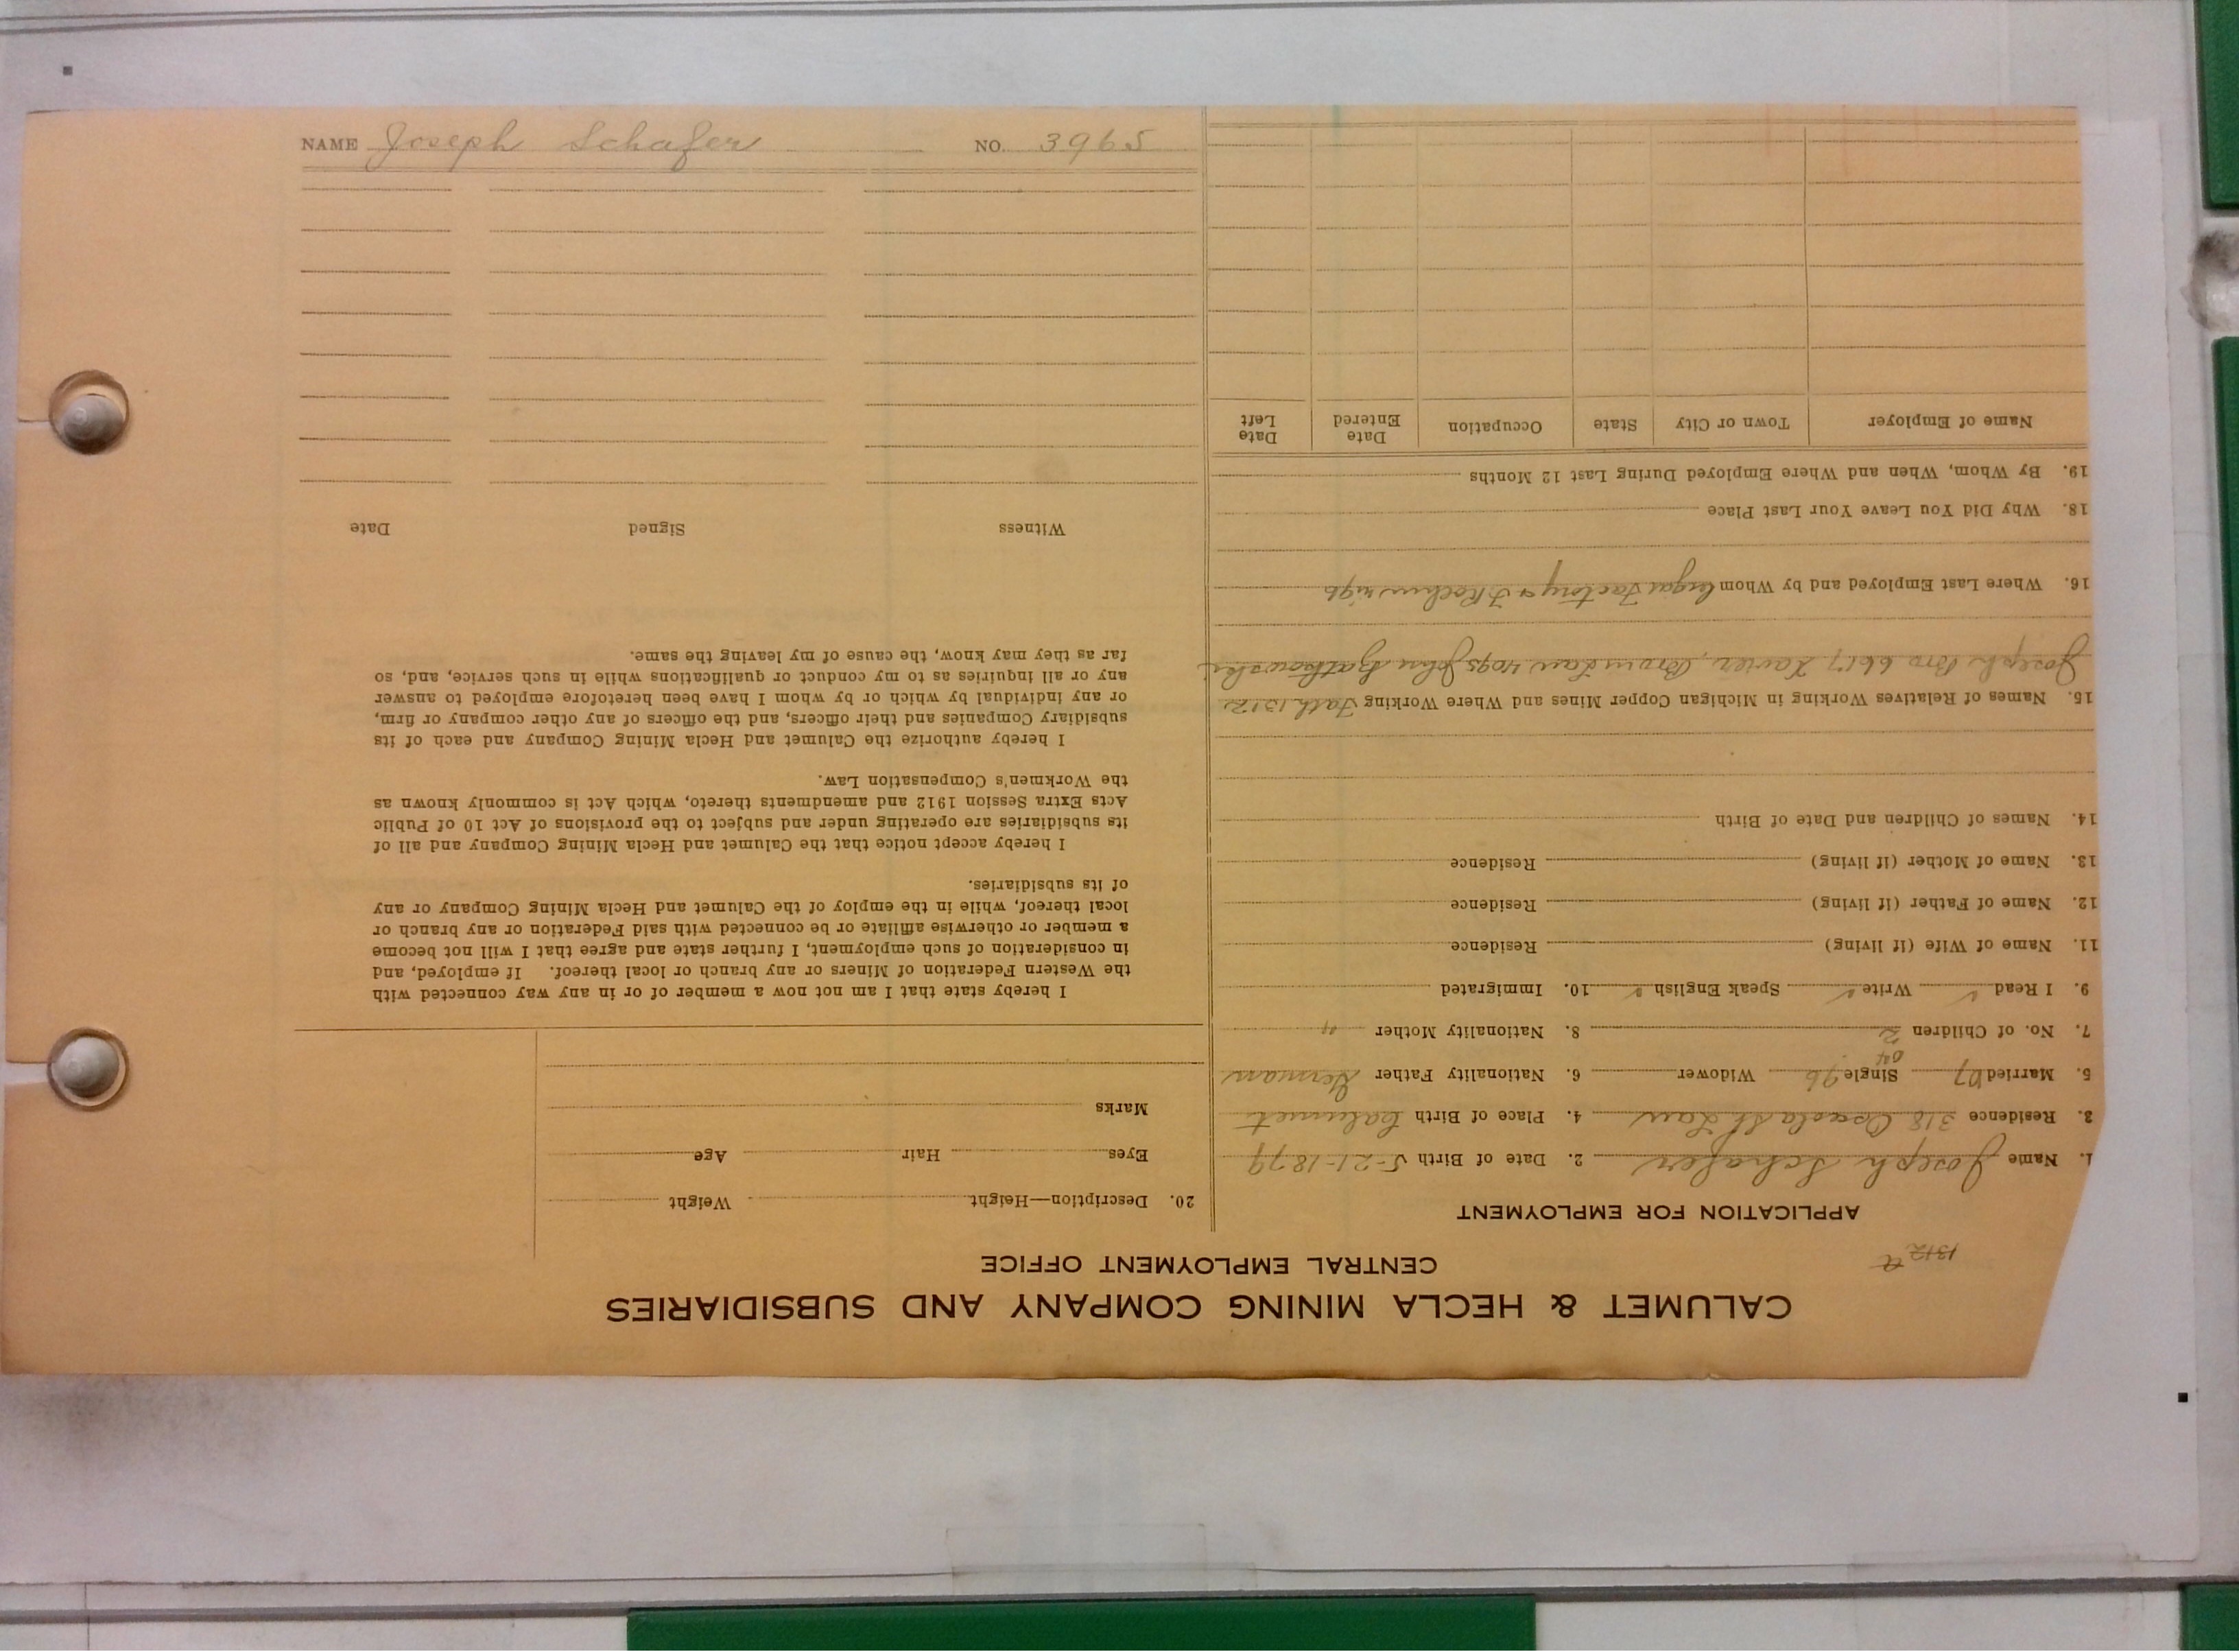 NAME Joseph Schafer NO. 3965
CALUMET & HECLA MINING COMPANY AND SUBSIDIARIES
CENTRAL EMPLOYMENT OFFICE
1312
APPLICATION FOR EMPLOYMENT
1. Name Joseph Schafer 2. Date of Birth 5-21-1879
3. Residence 318 Osceola St Lau 4. Place of Birth Calumet
5. Married 07 Single 96 Widower 6. Nationality Father German
7. No. of Children 2 8. Nationality Mother "
9. I Read ✓ Write ✓ Speak English ✓ 10. Immigrated
11. Name of Wife (if living) Residence
12. Name of Father (if living) Residence
13. Name of Mother (if living) Residence
14. Names of Children and Date of Birth
15. Names of Relatives Working in Michigan Copper Mines and Where Working Fath 1312
Joseph Bro 6617 Xavier, Bro in Law 4095 John
16. Where Last Employed and by Whom Cigar Factory
18. Why Did You Leave Your Last Place
19. By Whom, When and Where Employed During Last 12 Months
Name of Employer Town or City State Occupation Date Entered Date Left
20. Description—Height Weight
Eyes Hair Age
Marks
I hereby state that I am not now a member of or in any way connected with
the Western Federation of Miners or any branch or local thereof. If employed, and
in consideration of such employment, I further state and agree that I will not become
a member or otherwise affiliate or be connected with said Federation or any branch or
local thereof, while in the employ of the Calumet and Hecla Mining Company or any
of its subsidiaries.
I hereby accept notice that the Calumet and Hecla Mining Company and all of
its subsidiaries are operating under and subject to the provisions of Act 10 of Public
Acts Extra Session 1912 and amendments thereto, which Act is commonly known as
the Workmen's Compensation Law.
I hereby authorize the Calumet and Hecla Mining Company and each of its
subsidiary Companies and their officers, and the officers of any other company or firm,
or any individual by which or by whom I have been heretofore employed to answer
any or all inquiries as to my conduct or qualifications while in such service, and, so
far as they may know, the cause of my leaving the same.
Witness Signed Date